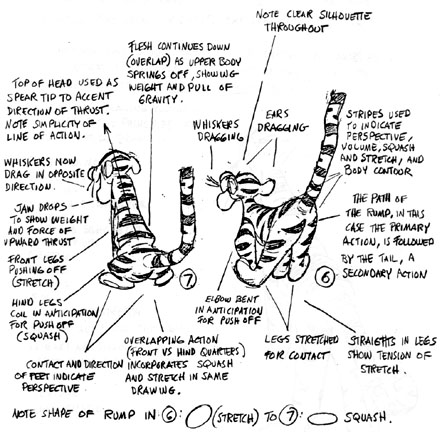 NOTE CLEAR SILHOUETTE
THROUGHOUT
FLESH CONTINUES DOWN
(OVERLAP) AS UPPER BODY
SPRINGS OFF, SHOWING
WEIGHT AND PULL OF
GRAVITY.
TOP OF HEAD USED AS
SPEAR TIP TO ACCENT
DIRECTION OF THRUST.
NOTE SIMPLICITY OF
LINE OF ACTION.
WHISKERS
DRAGGING
EARS
DRAGGING
STRIPES USED
TO INDICATE
PERSPECTIVE,
VOLUME, SQUASH
AND STRETCH, AND
BODY CONTOUR
WHISKERS NOW
DRAG IN OPPOSITE
DIRECTION.
JAW DROPS
TO SHOW WEIGHT
AND FORCE OF
UPWARD THRUST
FRONT LEGS
PUSHING OFF
(STRETCH)
HIND LEGS
COIL IN ANTICIPATION
FOR PUSH OFF
(SQUASH)
THE PATH OF
THE RUMP, IN THIS
CASE THE PRIMARY
ACTION, IS FOLLOWED
BY THE TAIL, A
SECONDARY ACTION
7
6
ELBOW BENT
IN ANTICIPATION
FOR PUSH OFF
CONTACT AND DIRECTION
OF FEET INDICATE
PERSPECTIVE
OVERLAPPING ACTION
(FRONT VS HIND QUARTERS)
INCORPORATES SQUASH
AND STRETCH IN SAME
DRAWING.
LEGS STRETCHED
FOR CONTACT
STRAIGHTS IN LEGS
SHOW TENSION OF
STRETCH.
NOTE SHAPE OF RUMP IN 6: (STRETCH) TO 7: SQUASH.